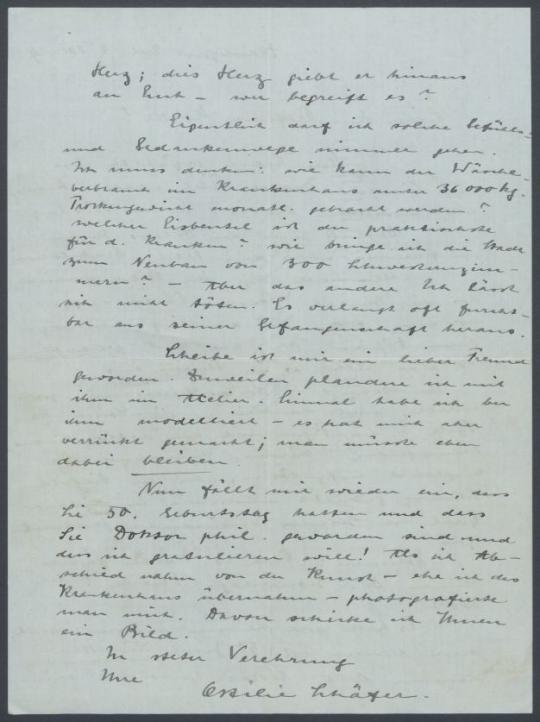 Herz; dies Herz giebt er hinaus
an Euch – wer begreift es?
Eigentlich darf ich solche Gefühls-
und Gedankenwege nimmer gehen.
Ich muss denken: wie kann der Wäsche-
verbrauch im Krankenhaus unter 36 000 kg.
Trockengewicht monatl. gebracht werden?
welcher Eisbeutel ist der praktischste
für d. Kranken? wie bringe ich die Stadt
zum Neubau von 300 Schwesternzim-
mern? – Aber das andere Ich lässt
sich nicht töten. Es verlangt oft furcht-
bar aus seiner Gefangenschaft heraus.
Scheibe ist mir ein lieber Freund
geworden. Zuweilen plaudere ich mit
ihm im Atelier. Einmal habe ich bei
ihm modelliert – es hat mich aber
verrückt gemacht; man müsste eben
dabei bleiben.
Nun fällt mir wieder ein, dass
Sie 50. Geburtstag hatten und dass
Sie Doktor phil. geworden sind und
dass ich gratulieren will! Als ich Ab-
schied nahm von der Kunst – ehe ich das
Krankenhaus übernahm – photografierte
man mich. Davon schicke ich Ihnen
ein Bild.
In steter Verehrung
Ihre
Ottilie Schäfer.